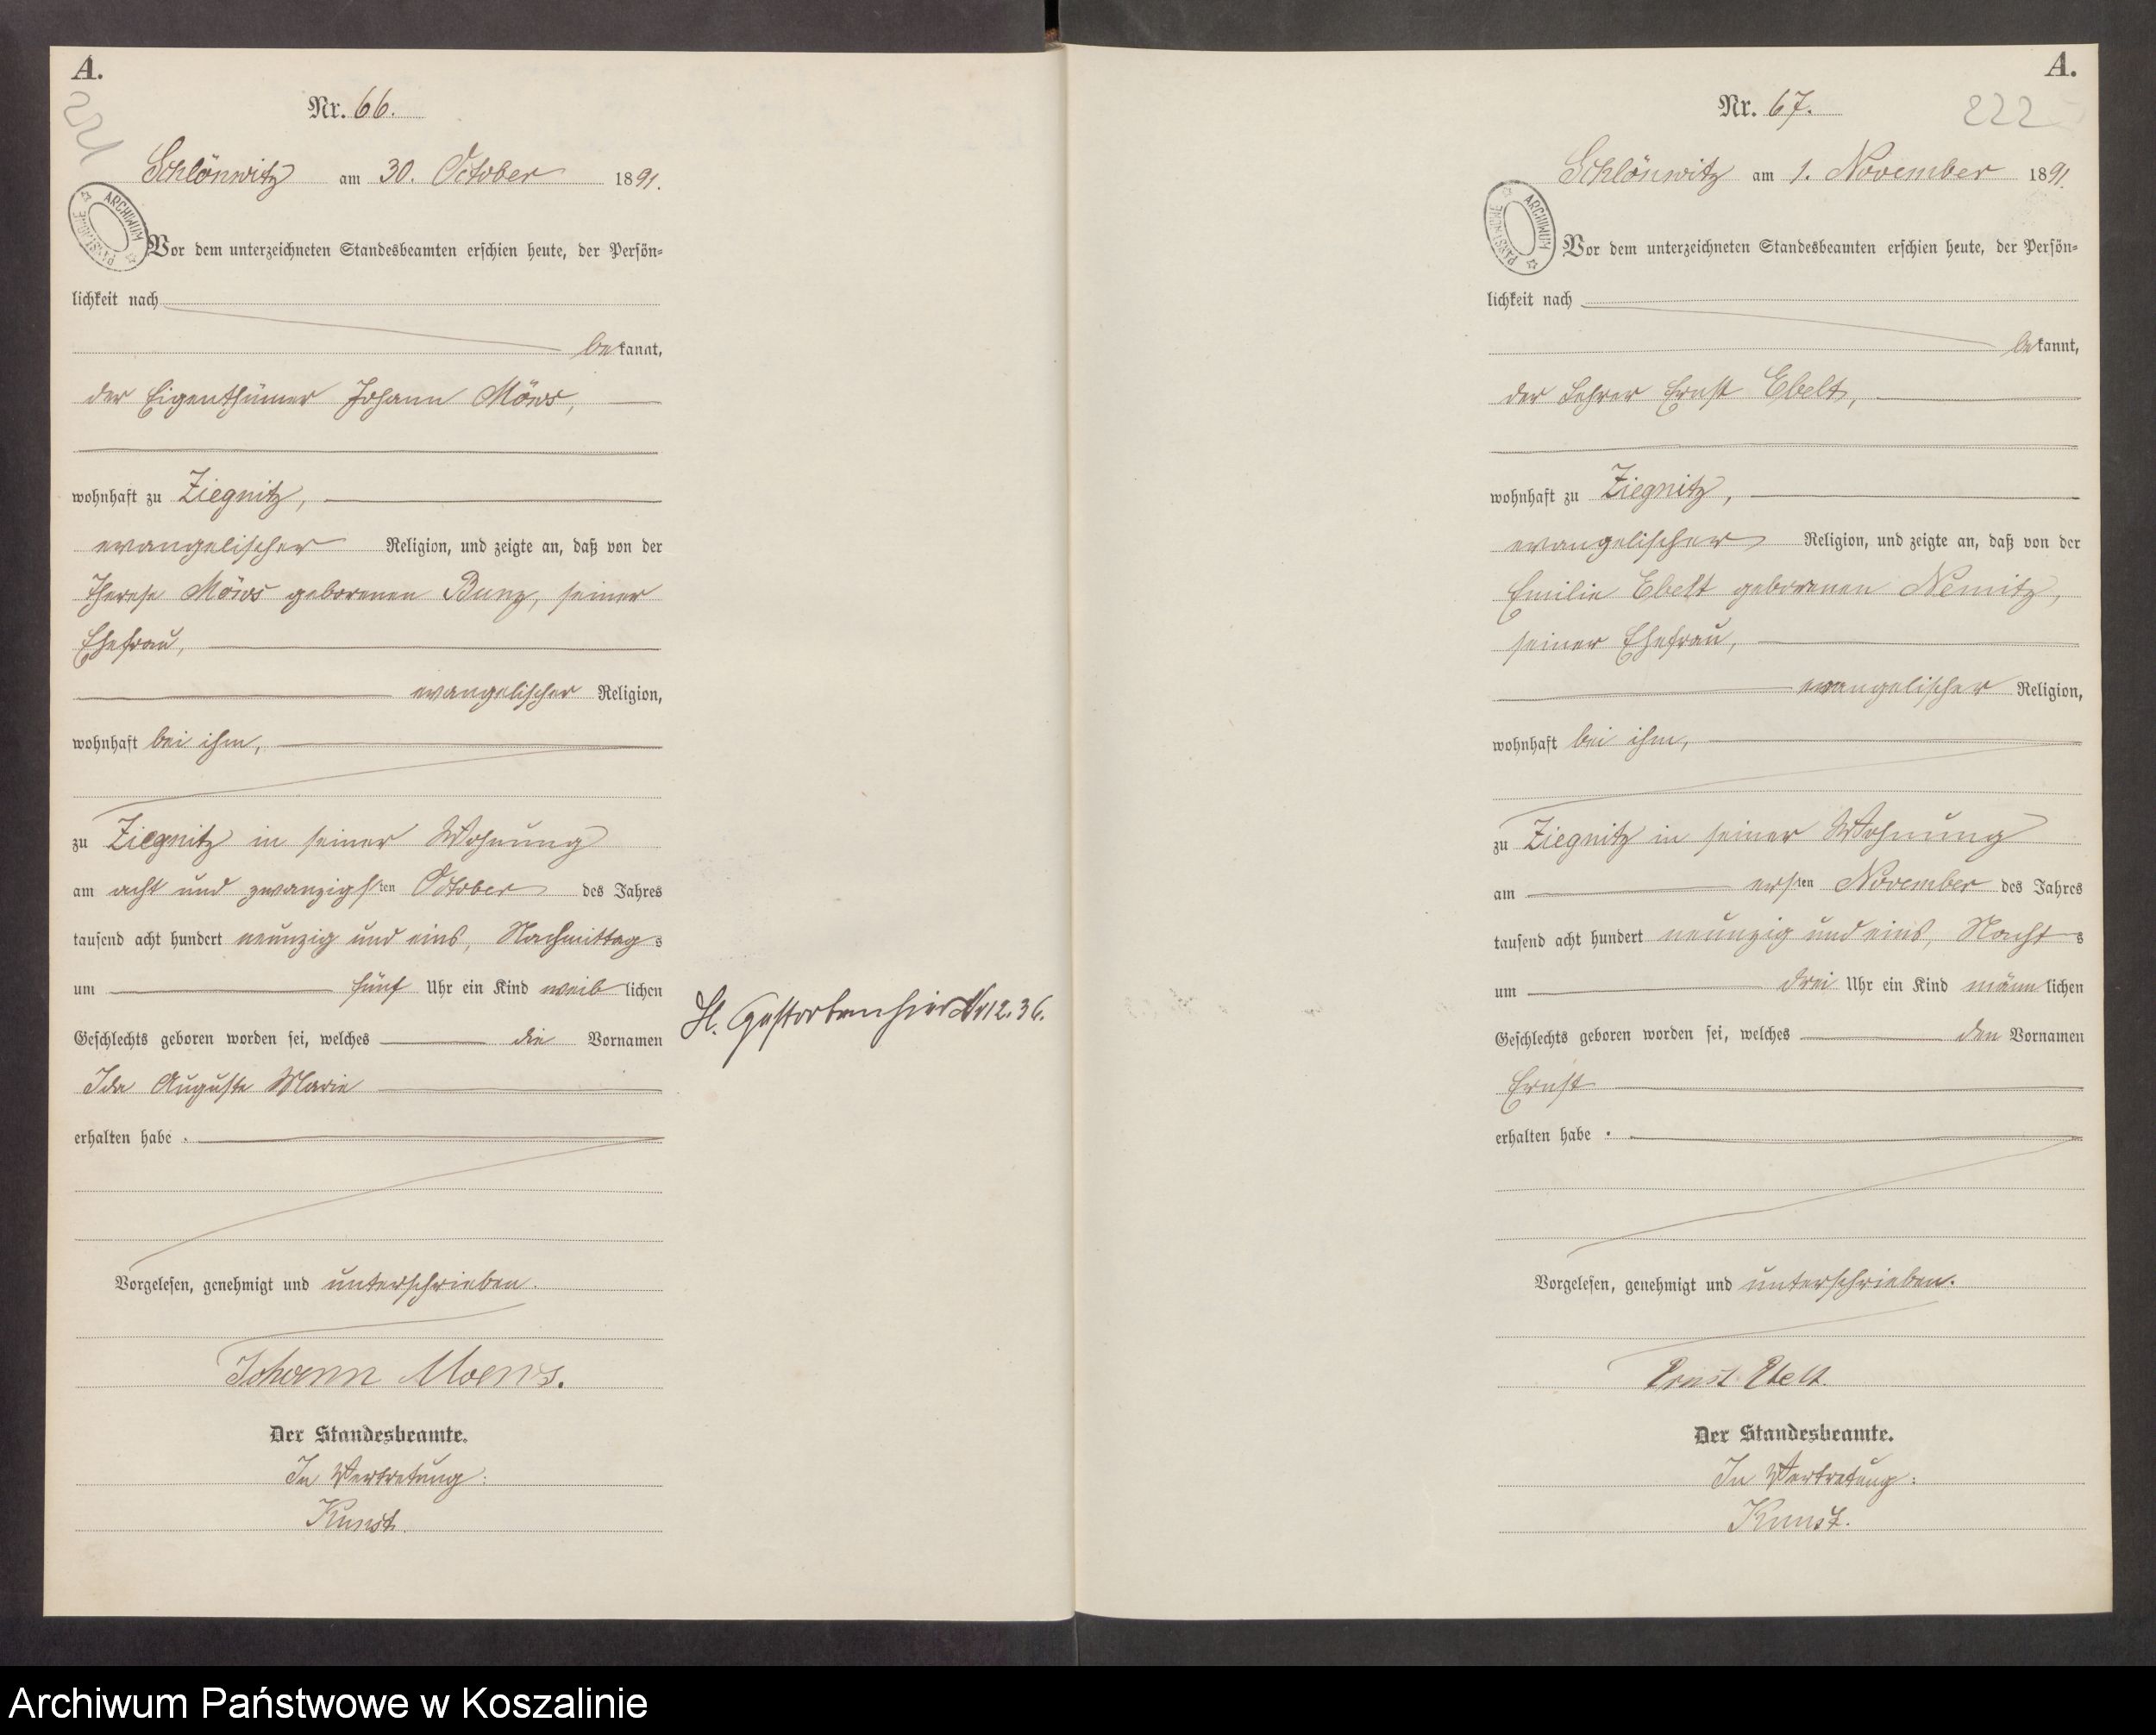 A.
221
Nr. 66.
Schlönwitz am 30. October 1891.
ARCHIWUM PAŃSTWOWE
Vor dem unterzeichneten Standesbeamten erschien heute, der Persön-
lichkeit nach
bekannt,
der Eigenthümer Johann Möws,
wohnhaft zu Ziegnitz,
evangelischer Religion, und zeigte an, daß von der
Therese Möws geborenen Bunz, seiner
Ehefrau,
evangelischer Religion,
wohnhaft bei ihm,
zu Ziegnitz in seiner Wohnung
am acht und zwanzigsten October des Jahres
tausend acht hundert neunzig und eins, Nachmittags
um fünf Uhr ein Kind weiblichen
Geschlechts geboren worden sei, welches die Vornamen
Ida Auguste Marie
erhalten habe.
Vorgelesen, genehmigt und unterschrieben.
Johann Moews.
Der Standesbeamte.
In Vertretung:
Kunst.
Gestorben hier Nr 12. 36.
A.
222
Nr. 67.
Schlönwitz am 1. November 1891.
ARCHIWUM PAŃSTWOWE
Vor dem unterzeichneten Standesbeamten erschien heute, der Persön-
lichkeit nach
bekannt,
der Lehrer Ernst Ebelt,
wohnhaft zu Ziegnitz,
evangelischer Religion, und zeigte an, daß von der
Emilie Ebelt geborenen Nemitz,
seiner Ehefrau,
evangelischer Religion,
wohnhaft bei ihm,
zu Ziegnitz in seiner Wohnung
am ersten November des Jahres
tausend acht hundert neunzig und eins, Nachts
um drei Uhr ein Kind männlichen
Geschlechts geboren worden sei, welches den Vornamen
Ernst
erhalten habe.
Vorgelesen, genehmigt und unterschrieben.
Ernst Ebelt.
Der Standesbeamte.
In Vertretung:
Kunst.
Archiwum Państwowe w Koszalinie